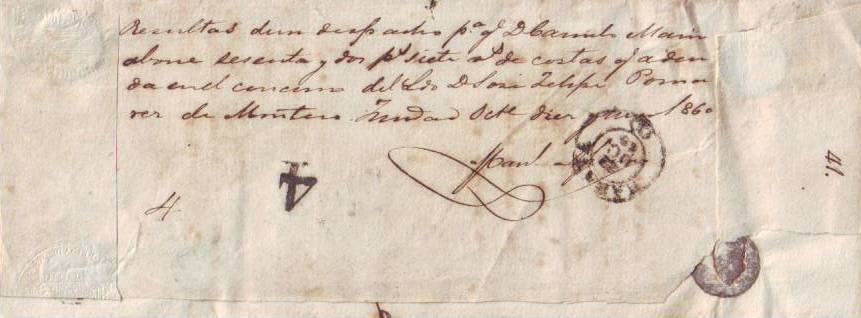 Resultas de un despacho pa. q. D. Camilo Marin
abone sesenta y dos ps. siete rs. de costas q. adeu
da en el concurso del Ldo D. José Felipe Poma
rer de Montero. Trinidad Octe. diez y 1860
Manl.
4
4
41.